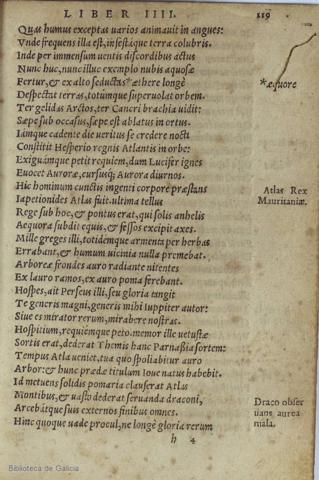 LIBER IIII. 119
Quas humus exceptas uarios animauit in angues:
Vnde frequens illa est, infestáque terra colubris.
Inde per immensum uentis discordibus actus
Nunc huc, nunc illuc exemplo nubis aquosæ
Fertur, & ex alto seductas* æthere longè
*æquore
Despectat terras, totúmque superuolat orbem.
Ter gelidas Arctos, ter Cancri brachia uidit:
Sæpe sub occasus, sæpe est ablatus in ortus.
Iámque cadente die ueritus se credere nocti
Constitit Hesperio regnis Atlantis in orbe:
Exiguámque petit requiem, dum Lucifer ignes
Euocet Auroræ, cursusq; Aurora diurnos.
Hîc hominum cunctis ingenti corpore præstans
Atlas Rex
Iapetionides Atlas fuit. ultima tellus
Mauritaniæ.
Rege sub hoc, & pontus erat, qui solis anhelis
Aequora subdit equis, & fessos excipit axes.
Mille greges illi, totidémque armenta per herbas
Errabant, & humum uicinia nulla premebat.
Arboreæ frondes auro radiante nitentes
Ex lauro ramos, ex auro poma ferebant.
Hospes, ait Perseus illi, seu gloria tangit
Te generis magni, generis mihi Iuppiter autor:
Siue es mirator rerum, mirabere nostras.
Hospitium, requiémque peto. memor ille uetustæ
Sortis erat, dederat Themis hanc Parnasia sortem:
Tempus Atla ueniet, tua quo spoliabitur auro
Arbor: & hunc prædæ titulum Ioue natus habebit.
Id metuens solidis pomaria clauserat Atlas
Montibus, & uasto dederat seruanda draconi,
Draco obser
Arcebátque suis externos finibus omnes.
uans aurea
mala.
Hinc quoque uade procul, ne longè gloria rerum
h 4
Biblioteca de Galicia